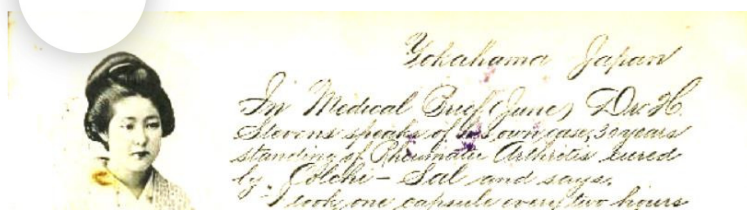 Yokahama Japan
In Medical Brief (June) Dr. H.
Stevens speaks of his own case, 30 years
standing of Rheumatic Arthritis cured
by Colchi-Sal and says.
I took one capsule every two hours